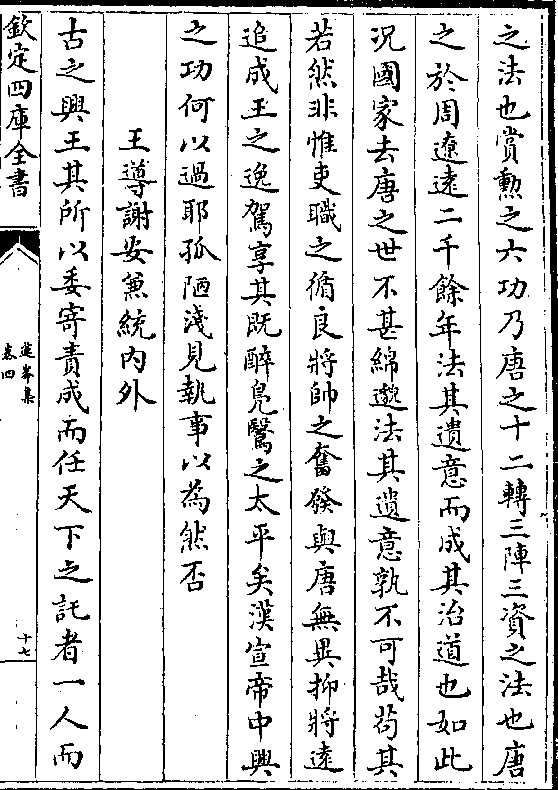 之法也賞勲之六功乃唐之十二轉三陣三資之法也唐
之於周遼逺二千餘年法其遺意而成其治道也如此
况國家去唐之世不甚綿邈法其遺意孰不可哉茍其
若然非惟吏職之循良將帥之奮發與唐無異抑將逺
追成王之逸駕享其既醉鳬鷖之太平矣漢宣帝中興
之功何以過耶孤陋淺見執事以為然否
王導謝安兼統内外
古之興王其所以委寄責成而任天下之託者一人而
欽定四庫全書
蓮峯集
卷四
十七